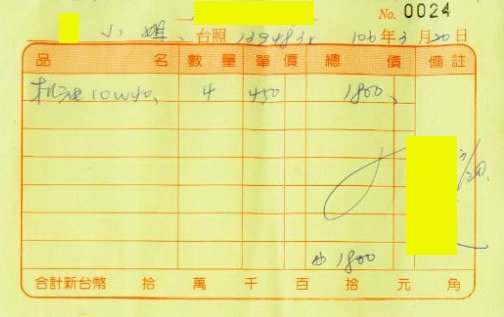 No. 0024
小姐 台照 106年3月20日
品名 數量 單價 總價 備註
机油10W40 4 450 1800
1800
合計新台幣 拾 萬 千 百 拾 元 角